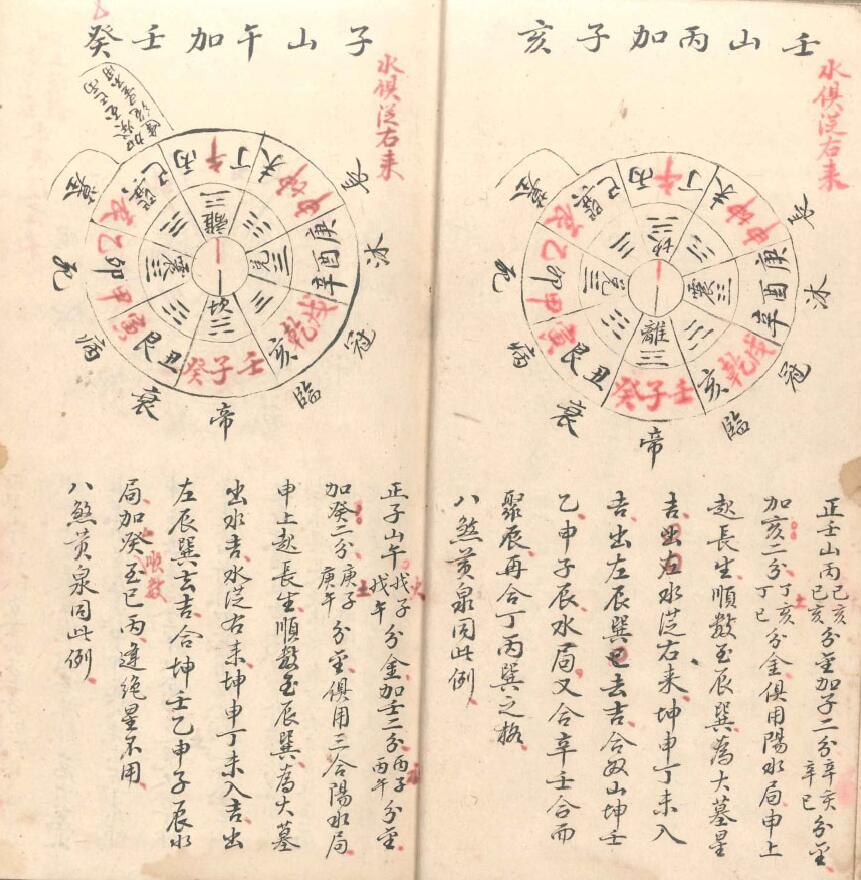 壬山丙加子亥
水俱從右来
生
沐
冠
臨
帝
衰
病
死
墓
丁午丙
未坤申
庚酉辛
戌乾亥
壬子癸
丑艮寅
甲卯乙
辰巽巳
坎
震
離
兌
正壬山丙己亥己亥分金加子二分辛亥辛巳分金
加亥二分丁亥丁巳分金俱用陽水局申上
起長生順數至辰巽為大墓星
吉出右水從右来坤申丁未入
吉出左辰巽巳去吉合坤壬
乙申子辰水局又合辛壬合而
聚辰再合丁丙巽之格
八煞黃泉同此例
子山午加壬癸
水俱從右来
沐
冠
臨
帝
衰
病
死
墓
丁午丙
未坤申
庚酉辛
戌乾亥
壬子癸
丑艮寅
甲卯乙
辰巽巳
離
兌
坎
震
正子山午戊子戊午分金加壬二分丙子丙午分金
加癸二分庚子庚午分金俱用三合陽水局
申上起長生順數至辰巽為大墓
出水吉水從右来坤申丁未入吉出
左辰巽去吉合坤壬乙申子辰水
局加癸至巳丙逢絕星不用
順數
八煞黃泉同此例